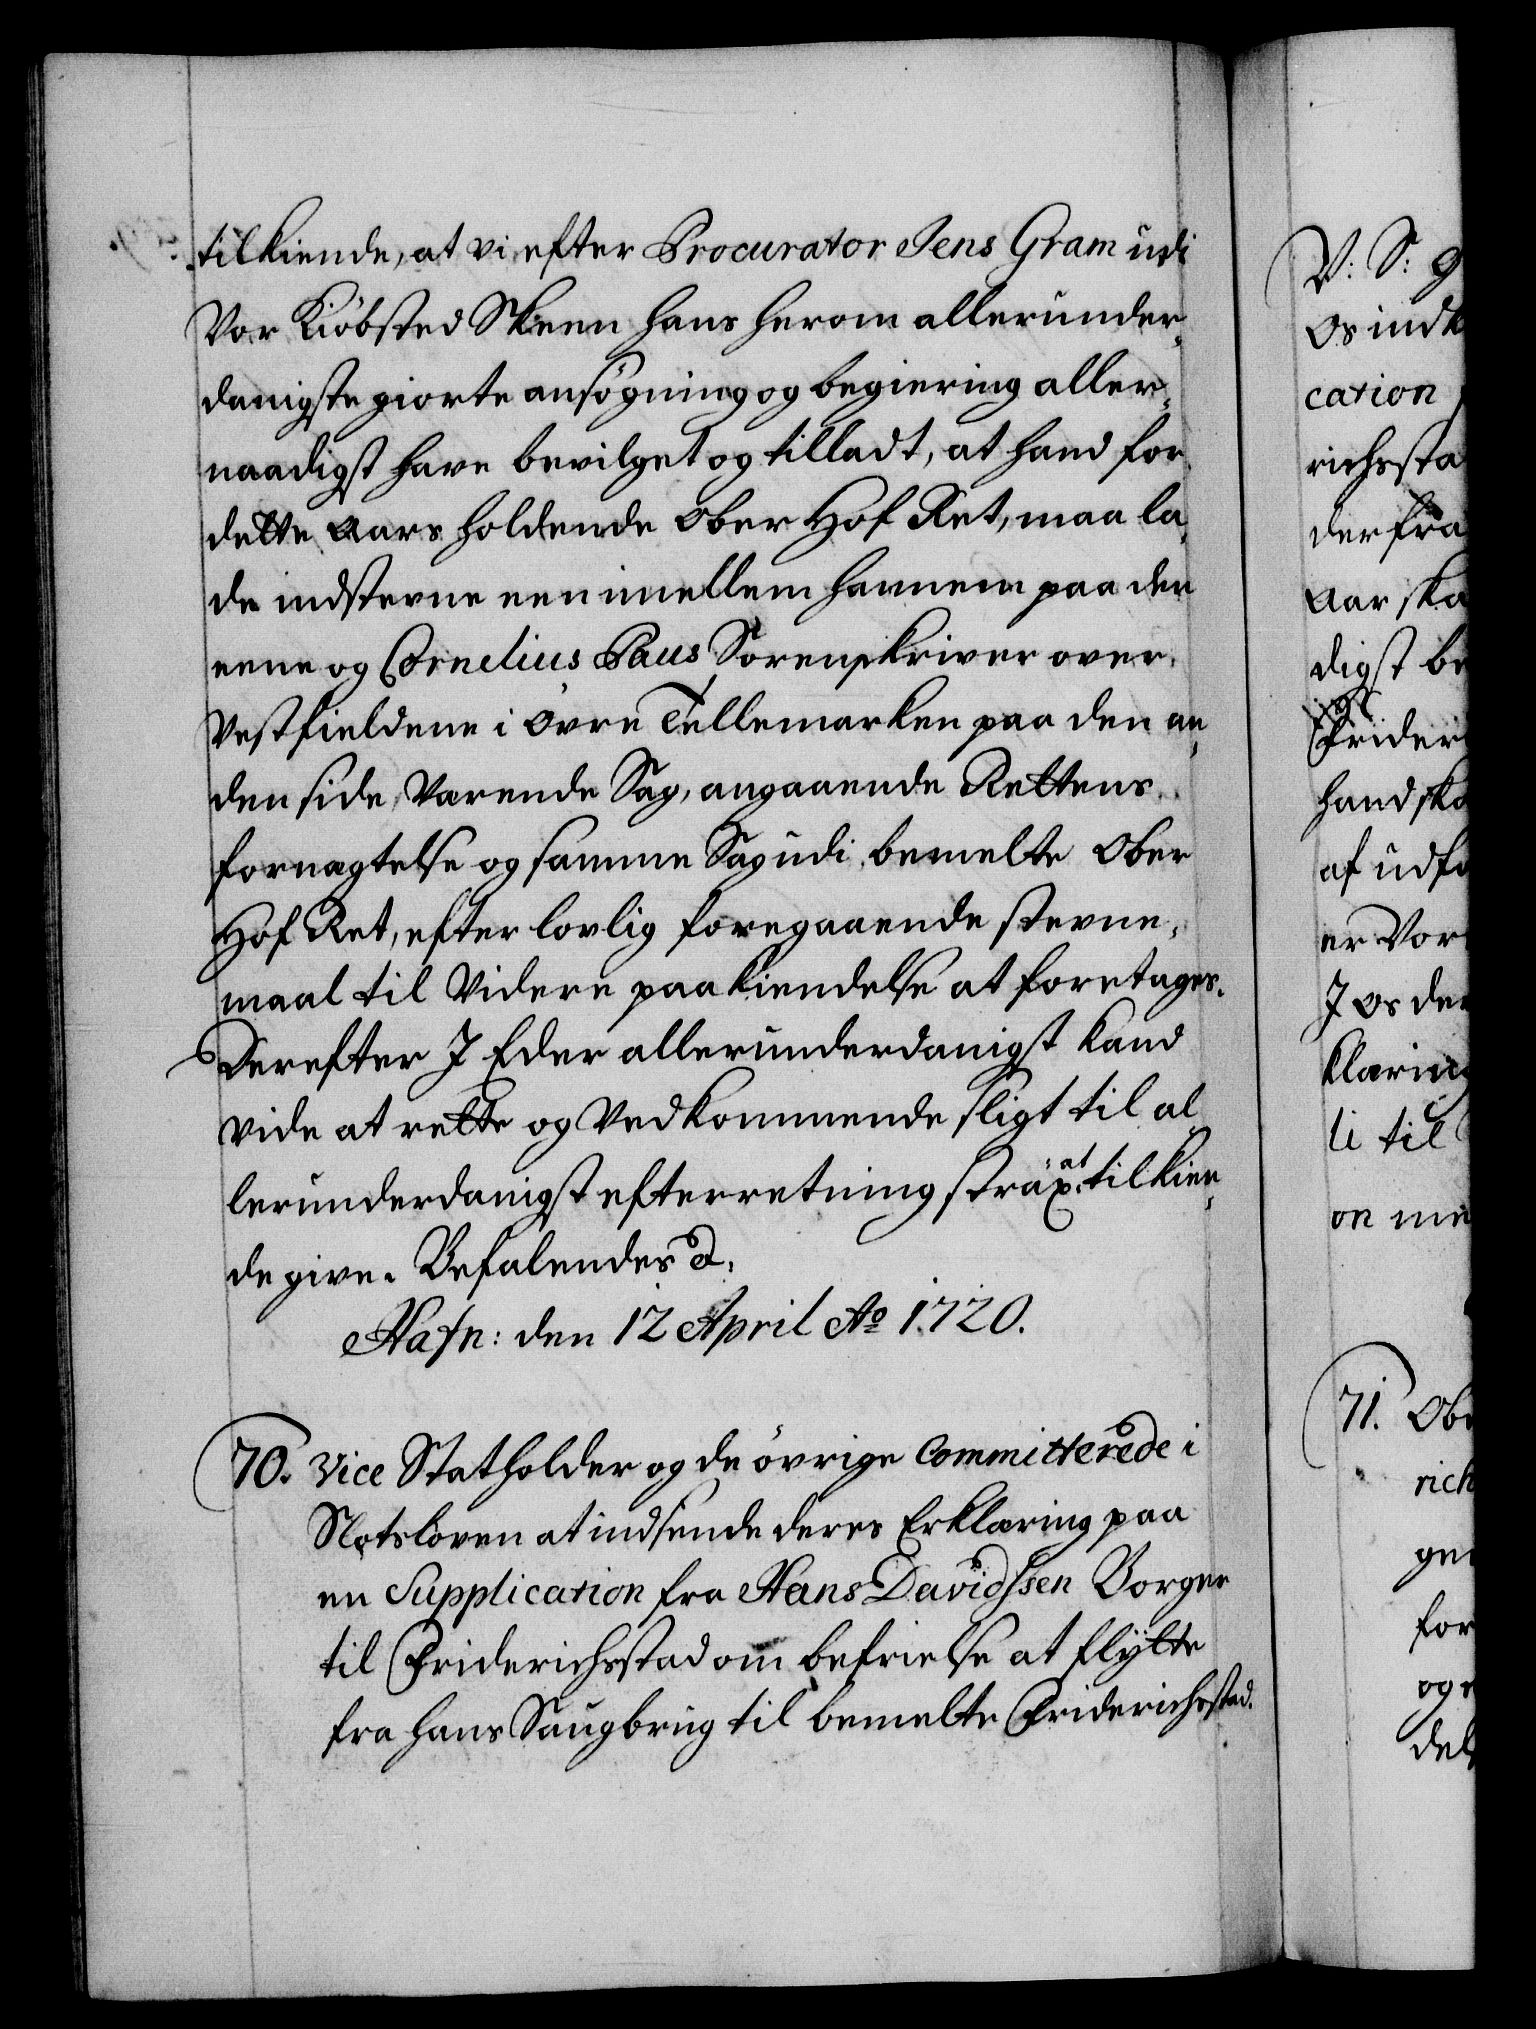 tilkiende, at vi efter Procurator Jens Gram udi
Vor Kiöbsted Skeen hans herom allerunder„
danigste giorte ansögning og begiering aller„
naadigst have bevilget og tilladt, at hand for
dette Aars holdende Ober Hof Ret, maa la„
de indstevne een imellem hannem paa den
eene og Cornelius Paus Sorenskriver over
Vestfieldene i övre Tellemarken paa den an„
den side, Varende Sag, angaaende Rettens
fornægtelse og samme Sag udi bemelte Ober
Hof Ret, efter lovlig foregaaende stevne„
maal til Videre paakiendelse at foretages.
Derefter I Eder allerunderdanigst kand
vide at rette og Vedkommende sligt til al„
lerunderdanigst efterretning sträx at tilkien„
de give. Befalendes &.
Hafn: den 12 April Ao 1720.
70. Vice Statholder og de övrige Committerede i
Slotsloven at indsende deres Erklæring paa
en Supplication fra Hans Davidssen Borger
til Friderichsstad om befrielse at flÿtte
fra hans Saugbrug til bemelte Friderichsstad.
V: S: g
Os indk
cation
richssta
der fra
Aar ska
digst be
Frider
hand ska
af udfo
er Vor
I os der
klæring
li til
on me
71. Obe
rich
ge
for
og
del